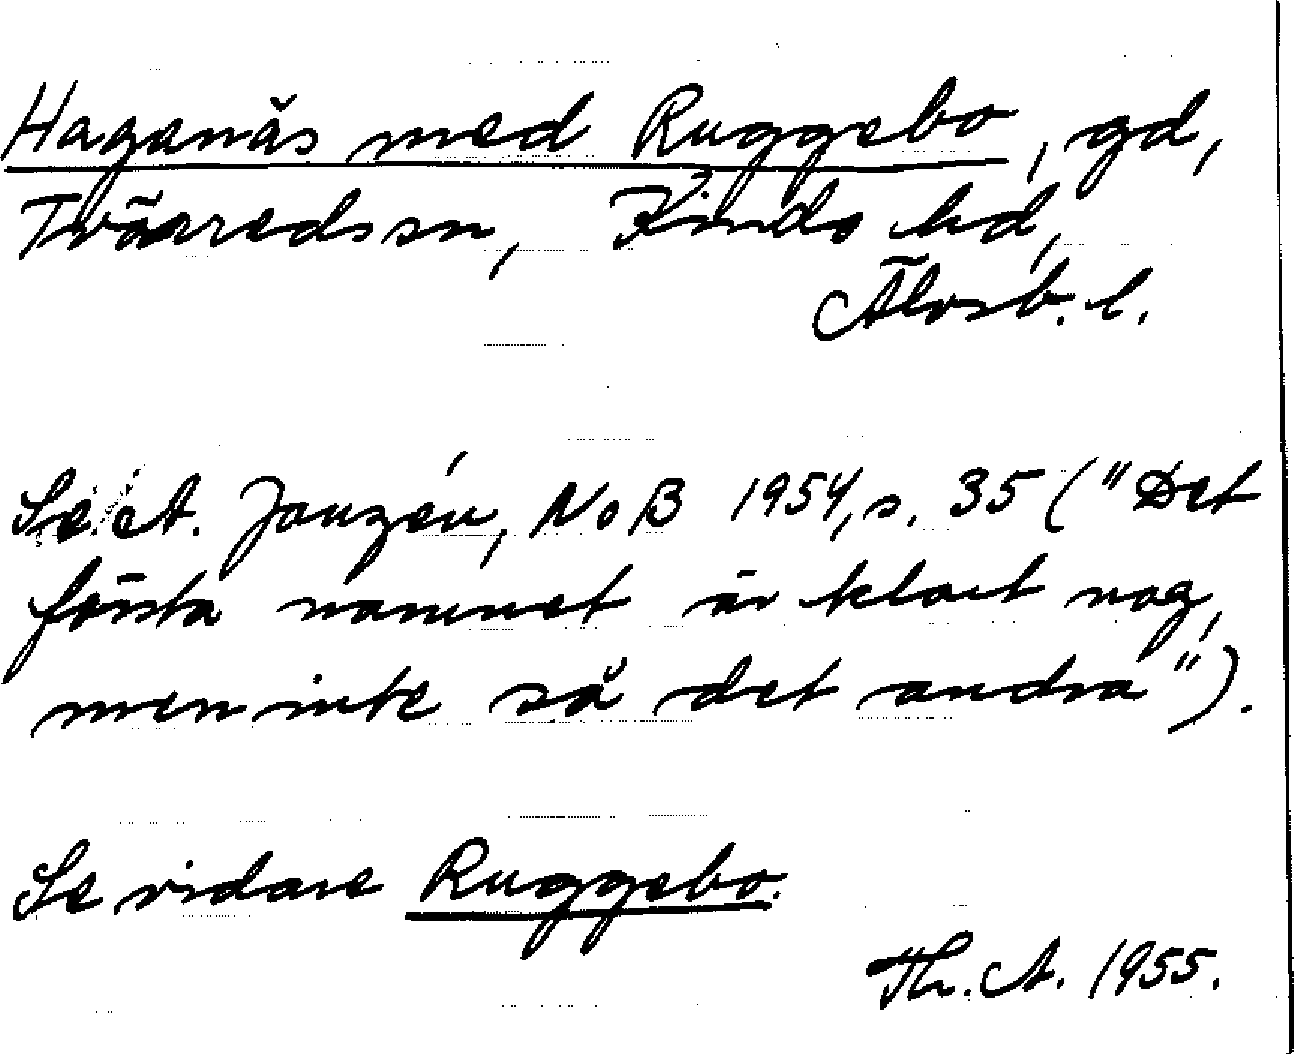 Haganäs med Ruggebo, gd,
Tvärredssn, Kinds hd,
Älvsb. l.
Se A. Janzén, NoB 1954, s. 35 ("Det
första namnet är klart nog,
men inte så det andra").
Se vidare Ruggebo.
Th. A. 1955.